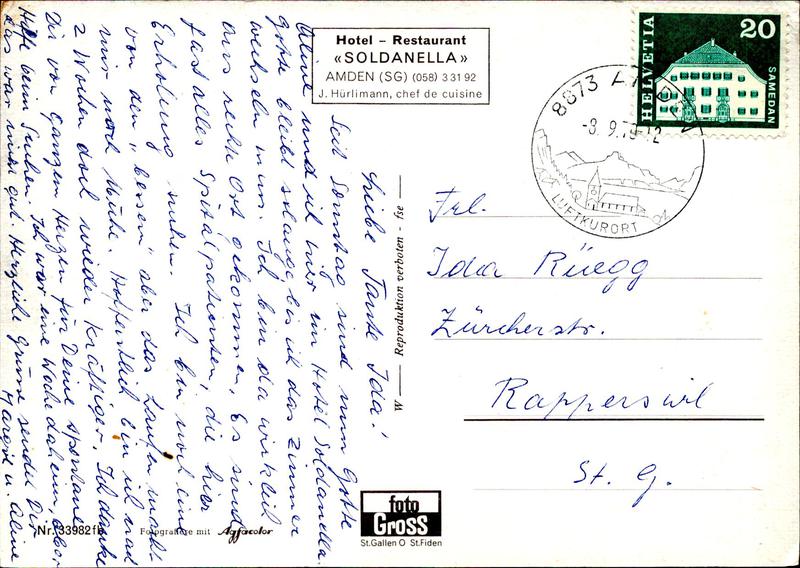 Hotel – Restaurant
«SOLDANELLA»
AMDEN (SG) (058) 3 31 92
J. Hürlimann, chef de cuisine
HELVETIA
20
SAMEDAN
8873 AMDEN
-8. 9.7 -12
LUFTKURORT
Liebe Tante Ida!
Seit Samstag sind nun Gotte
Aline und ich hier im Hotel Soldanella.
Gotte bleibt solange bis ich das Zimmer
wechseln muss. Ich bin da wirklich
ans rechte Ort gekommen. Es sind
fast alles Spitalpatienten, die hier
Erholung suchen. Ich bin noch eine
von den "bessern" aber das Laufen macht
mir noch Mühe. Hoffentlich bin ich nach
2 Wochen doch wieder kräftiger. Ich danke
Dir von ganzem Herzen für Deine spontane
Hilfe beim Suchen. Ich war eine Woche daheim, aber
das war nicht gut. Herzliche Grüsse senden Dir
Margrit u. Aline
W — Reproduktion verboten - ise —
Frl.
Ida Rüegg
Zürcherstr.
Rapperswil
St. G.
Nr. 33982
Fotografiere mit Agfacolor
foto
Gross
St.Gallen O St.Fiden